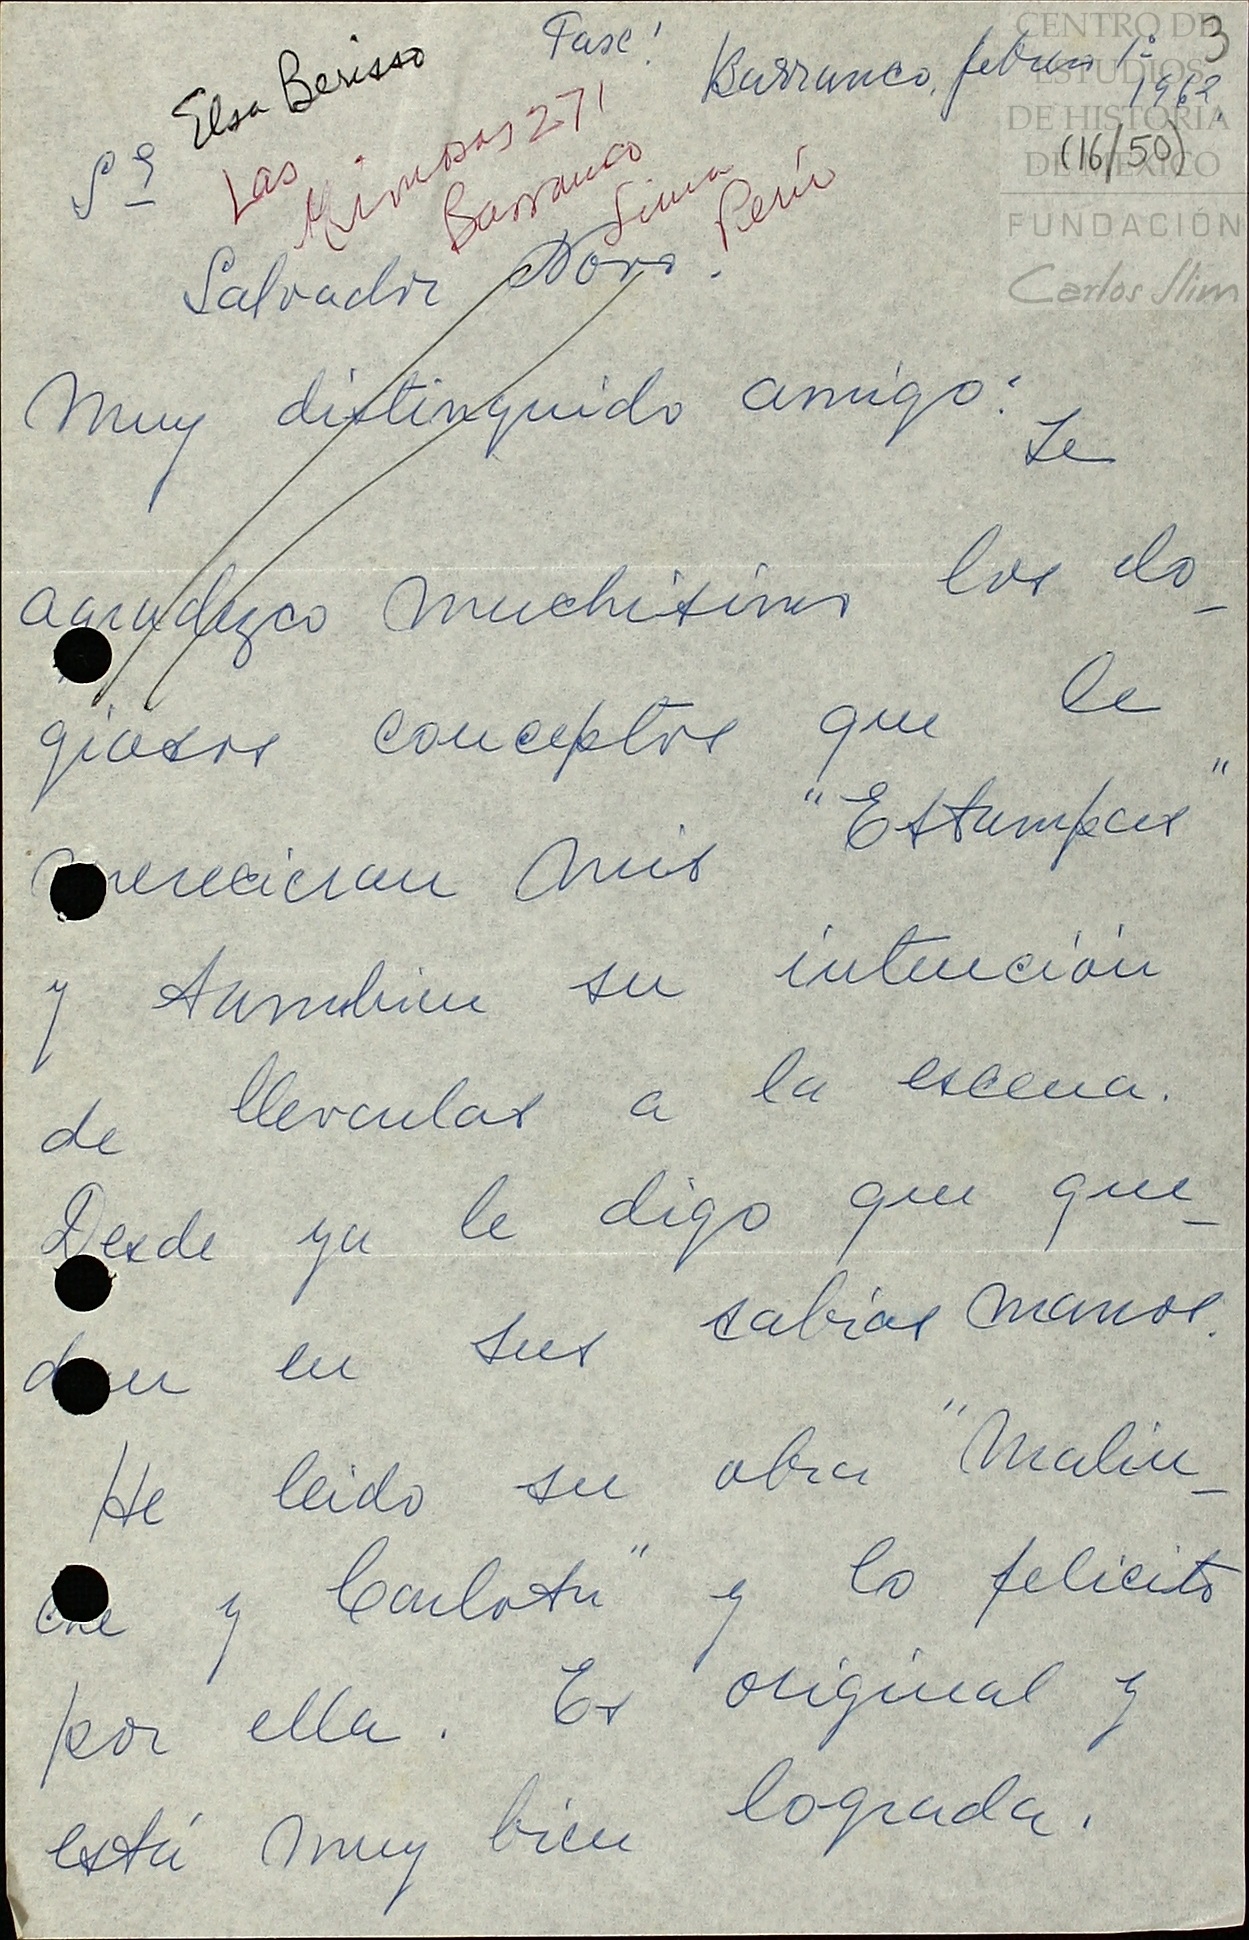 3
Fasc!
Barranco, febrero 1º
1962.
(16/50)
Elsa Berisso
Las
Mimosas 271
Barranco
Lima
Perú
Sr
Salvador Novo.
Muy distinguido amigo:
Le
agradezco muchísimo los elo-
giosos conceptos que le
merecieran mis "Estampas"
y tambien su intención
de llevarlas a la escena.
Desde ya le digo que que-
dan en sus sabias manos.
He leido su obra "Malin-
che y Carlota" y lo felicito
por ella. Es original y
está muy bien lograda.
CENTRO DE
ESTUDIOS
DE HISTORIA
DE MÉXICO
FUNDACIÓN
Carlos Slim